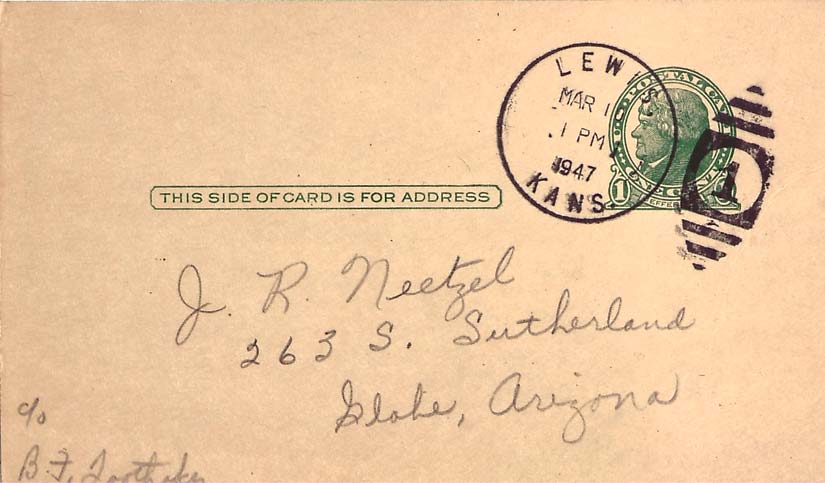 LEWIS
MAR 1
1 PM
1947
KANS.
1
1
THIS SIDE OF CARD IS FOR ADDRESS
J. R. Neetzel
263 S. Sutherland
Globe, Arizona
c/o
B. F.